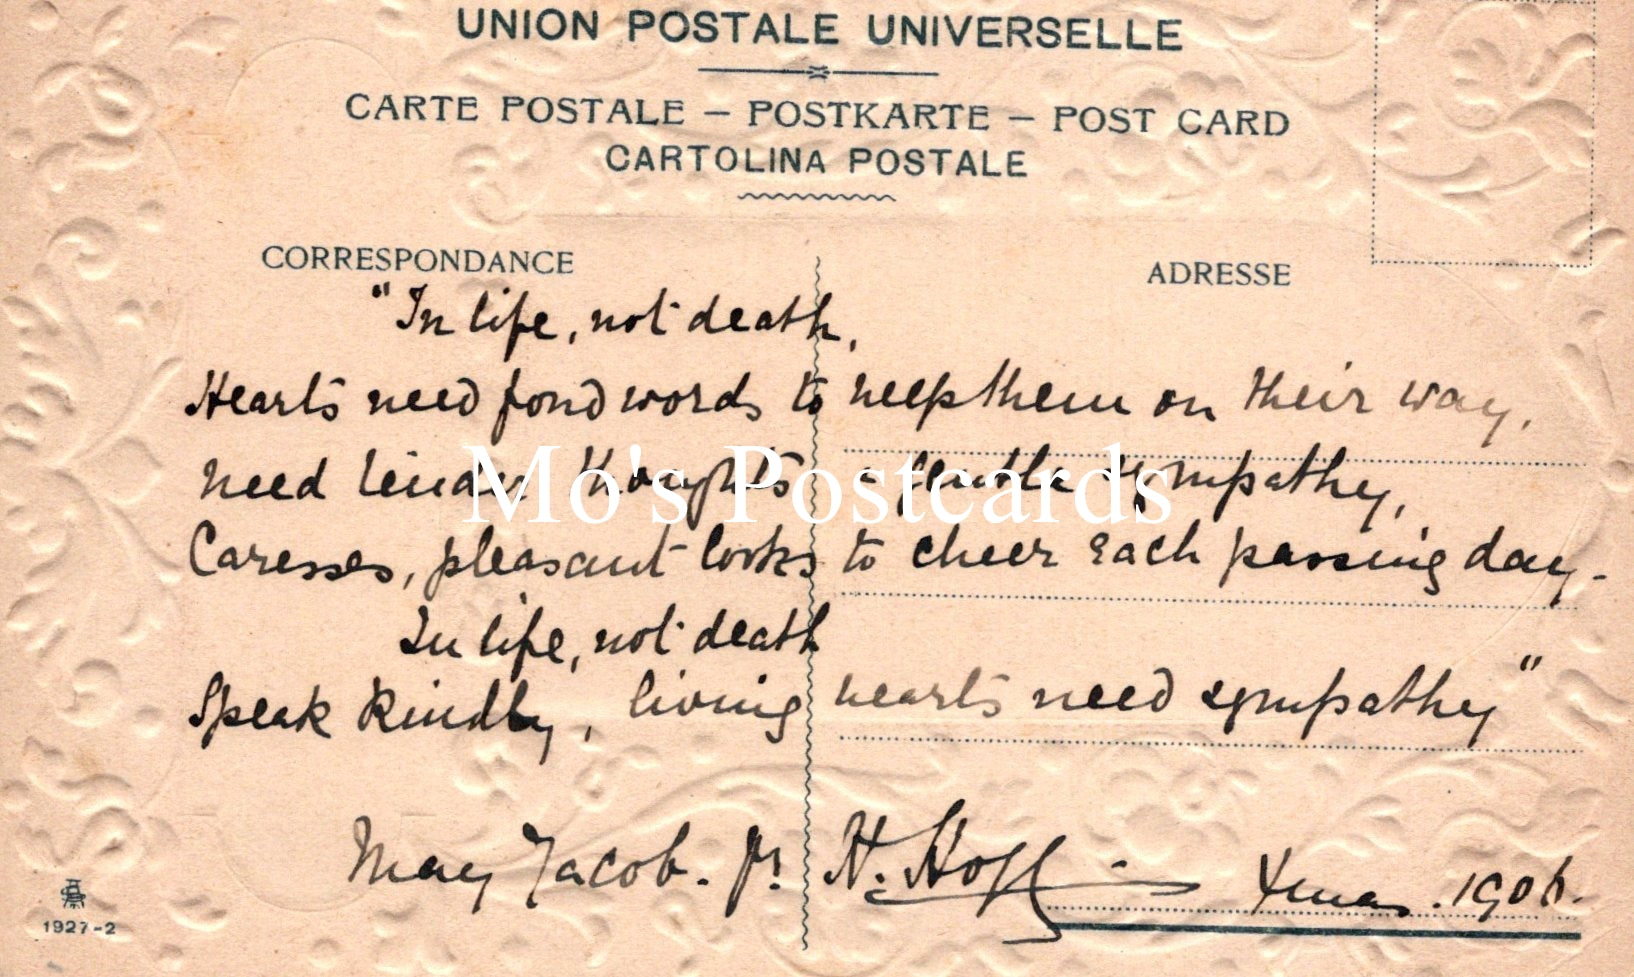 UNION POSTALE UNIVERSELLE
CARTE POSTALE – POSTKARTE – POST CARD
CARTOLINA POSTALE
CORRESPONDANCE
ADRESSE
"In life, not death,
Hearts need fond words to help them on their way,
need tender thoughts gentle sympathy,
Caresses, pleasant looks to cheer each passing day-
In life, not death
Speak kindly, living hearts need sympathy"
May Jacob. H. Xmas. 1906.
1927-2
Mo's Postcards